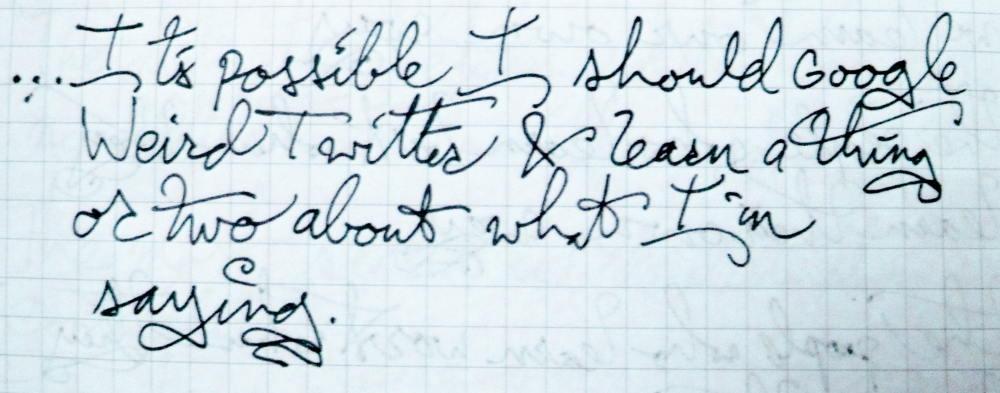 ... It's possible I should Google
Weird Twitter & learn a thing
or two about what I'm
saying.